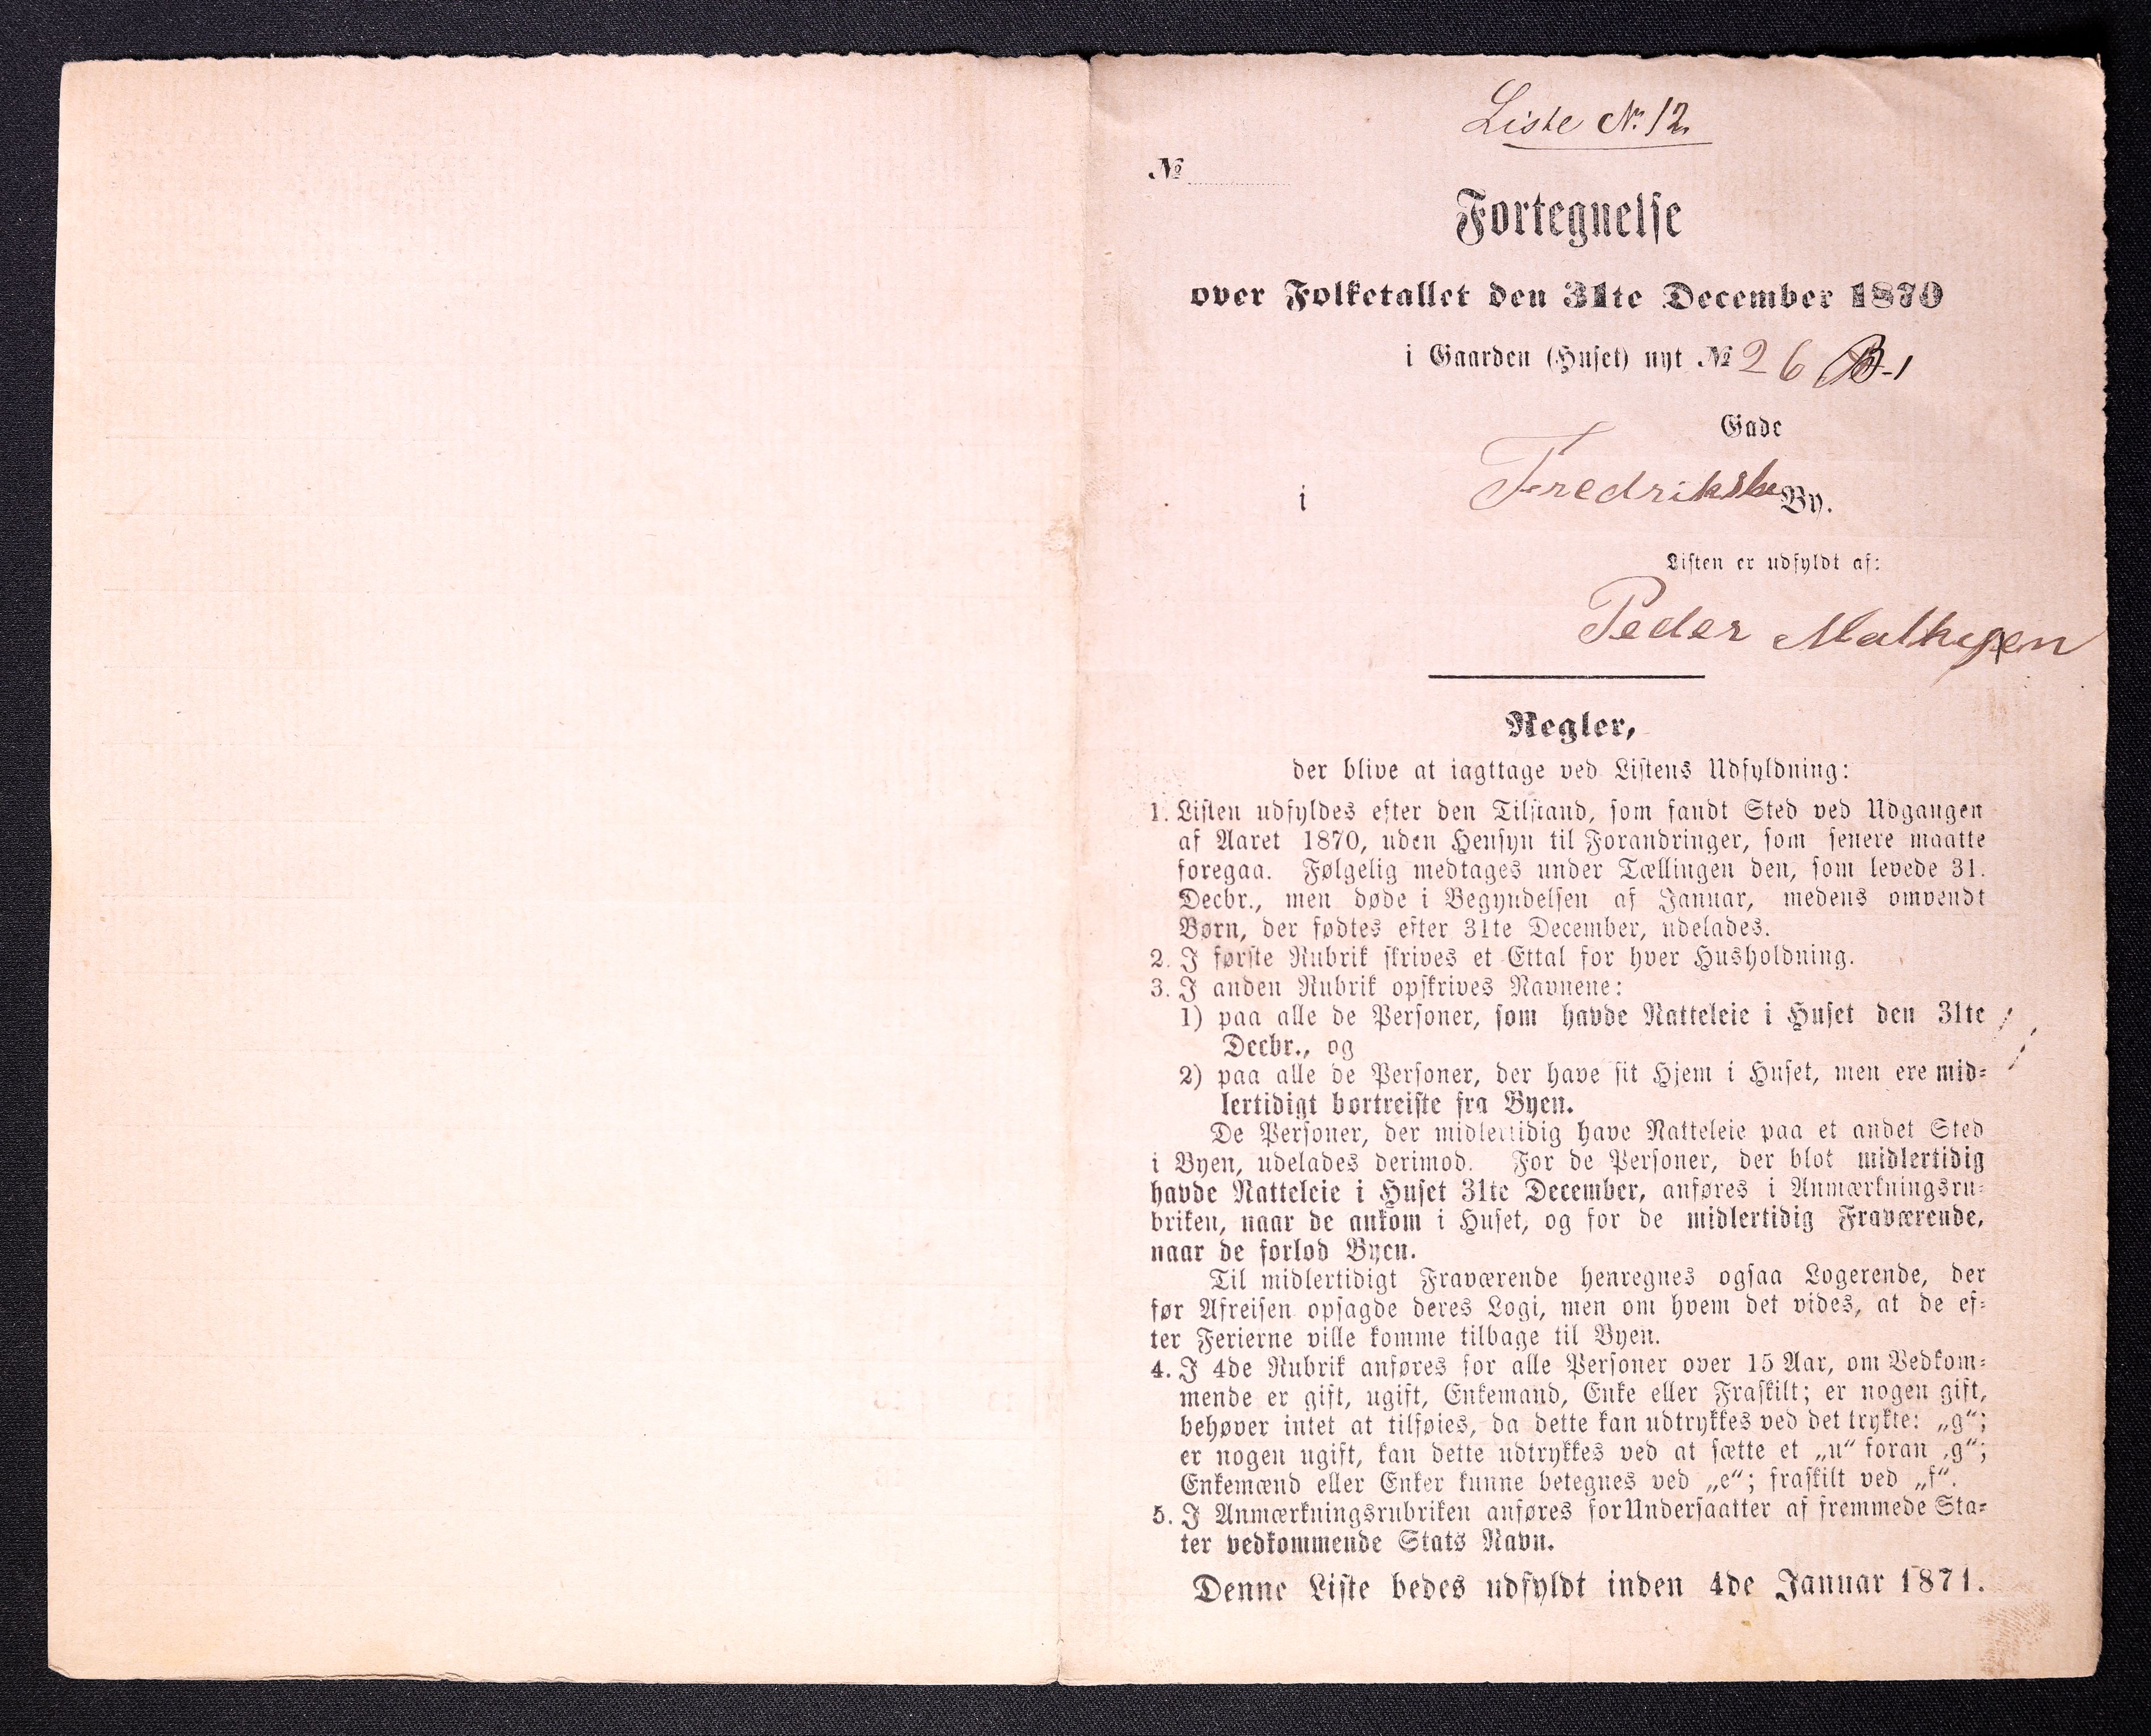 Liste № 12.
№
Fortegnelse
over Folketallet den 31te December 1870
i Gaarden (Huset) nyt № 26 B-1
Gade
i Fredrikshe By.
Listen er udfyldt af:
Peder
Regler,
der blive at iagttage ved Listens Udfyldning:
1. Listen udfyldes efter den Tilstand, som fandt Sted ved Udgangen
af Aaret 1870, uden Hensyn til Forandringer, som senere maatte
foregaa. Følgelig medtages under Tællingen den, som levede 31.
Decbr., men døde i Begyndelsen af Januar, medens omvendt
Børn, der fødtes efter 31te December, udelades.
2. I første Rubrik skrives et Ettal for hver Husholdning.
3. I anden Rubrik opskrives Navnene:
1) paa alle de Personer, som havde Natteleie i Huset den 31te
Decbr., og
2) paa alle de Personer, der have sit Hjem i Huset, men ere mid-
lertidigt bortreiste fra Byen.
De Personer, der midlertidig have Natteleie paa et andet Sted
i Byen, udelades derimod. For de Personer, der blot midlertidig
havde Natteleie i Huset 31te December, anføres i Anmærkningsru-
briken, naar de ankom i Huset, og for de midlertidig Fraværende,
naar de forlod Byen.
Til midlertidigt Fraværende henregnes ogsaa Logerende, der
før Afreisen opsagde deres Logi, men om hvem det vides, at de ef-
ter Ferierne ville komme tilbage til Byen.
4. I 4de Rubrik anføres for alle Personer over 15 Aar, om Vedkom-
mende er gift, ugift, Enkemand, Enke eller Fraskilt; er nogen gift,
behøver intet at tilføies, da dette kan udtrykkes ved det trykte: „g“;
er nogen ugift, kan dette udtrykkes ved at sætte et „u“ foran „g“;
Enkemænd eller Enker kunne betegnes ved „e“; fraskilt ved „f“.
5. I Anmærkningsrubriken anføres for Undersaatter af fremmede Sta-
ter vedkommende Stats Navn.
Denne Liste bedes udfyldt inden 4de Januar 1871.